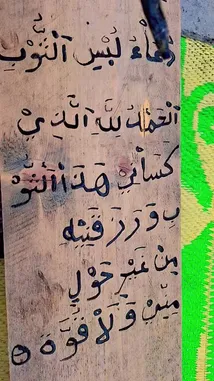 دُعَاءُ لُبْسِ الثَّوْبِ
اَلْحَمْدُ لِلَّهِ الَّذِيْ
كَسَانِيْ هَذَا الثَّوْ
بِ وَرَزَقَنِيْهِ
مِنْ غَيْرِ حَوْلٍ
مِنِّيْ وَلَا قُوَّةٍ